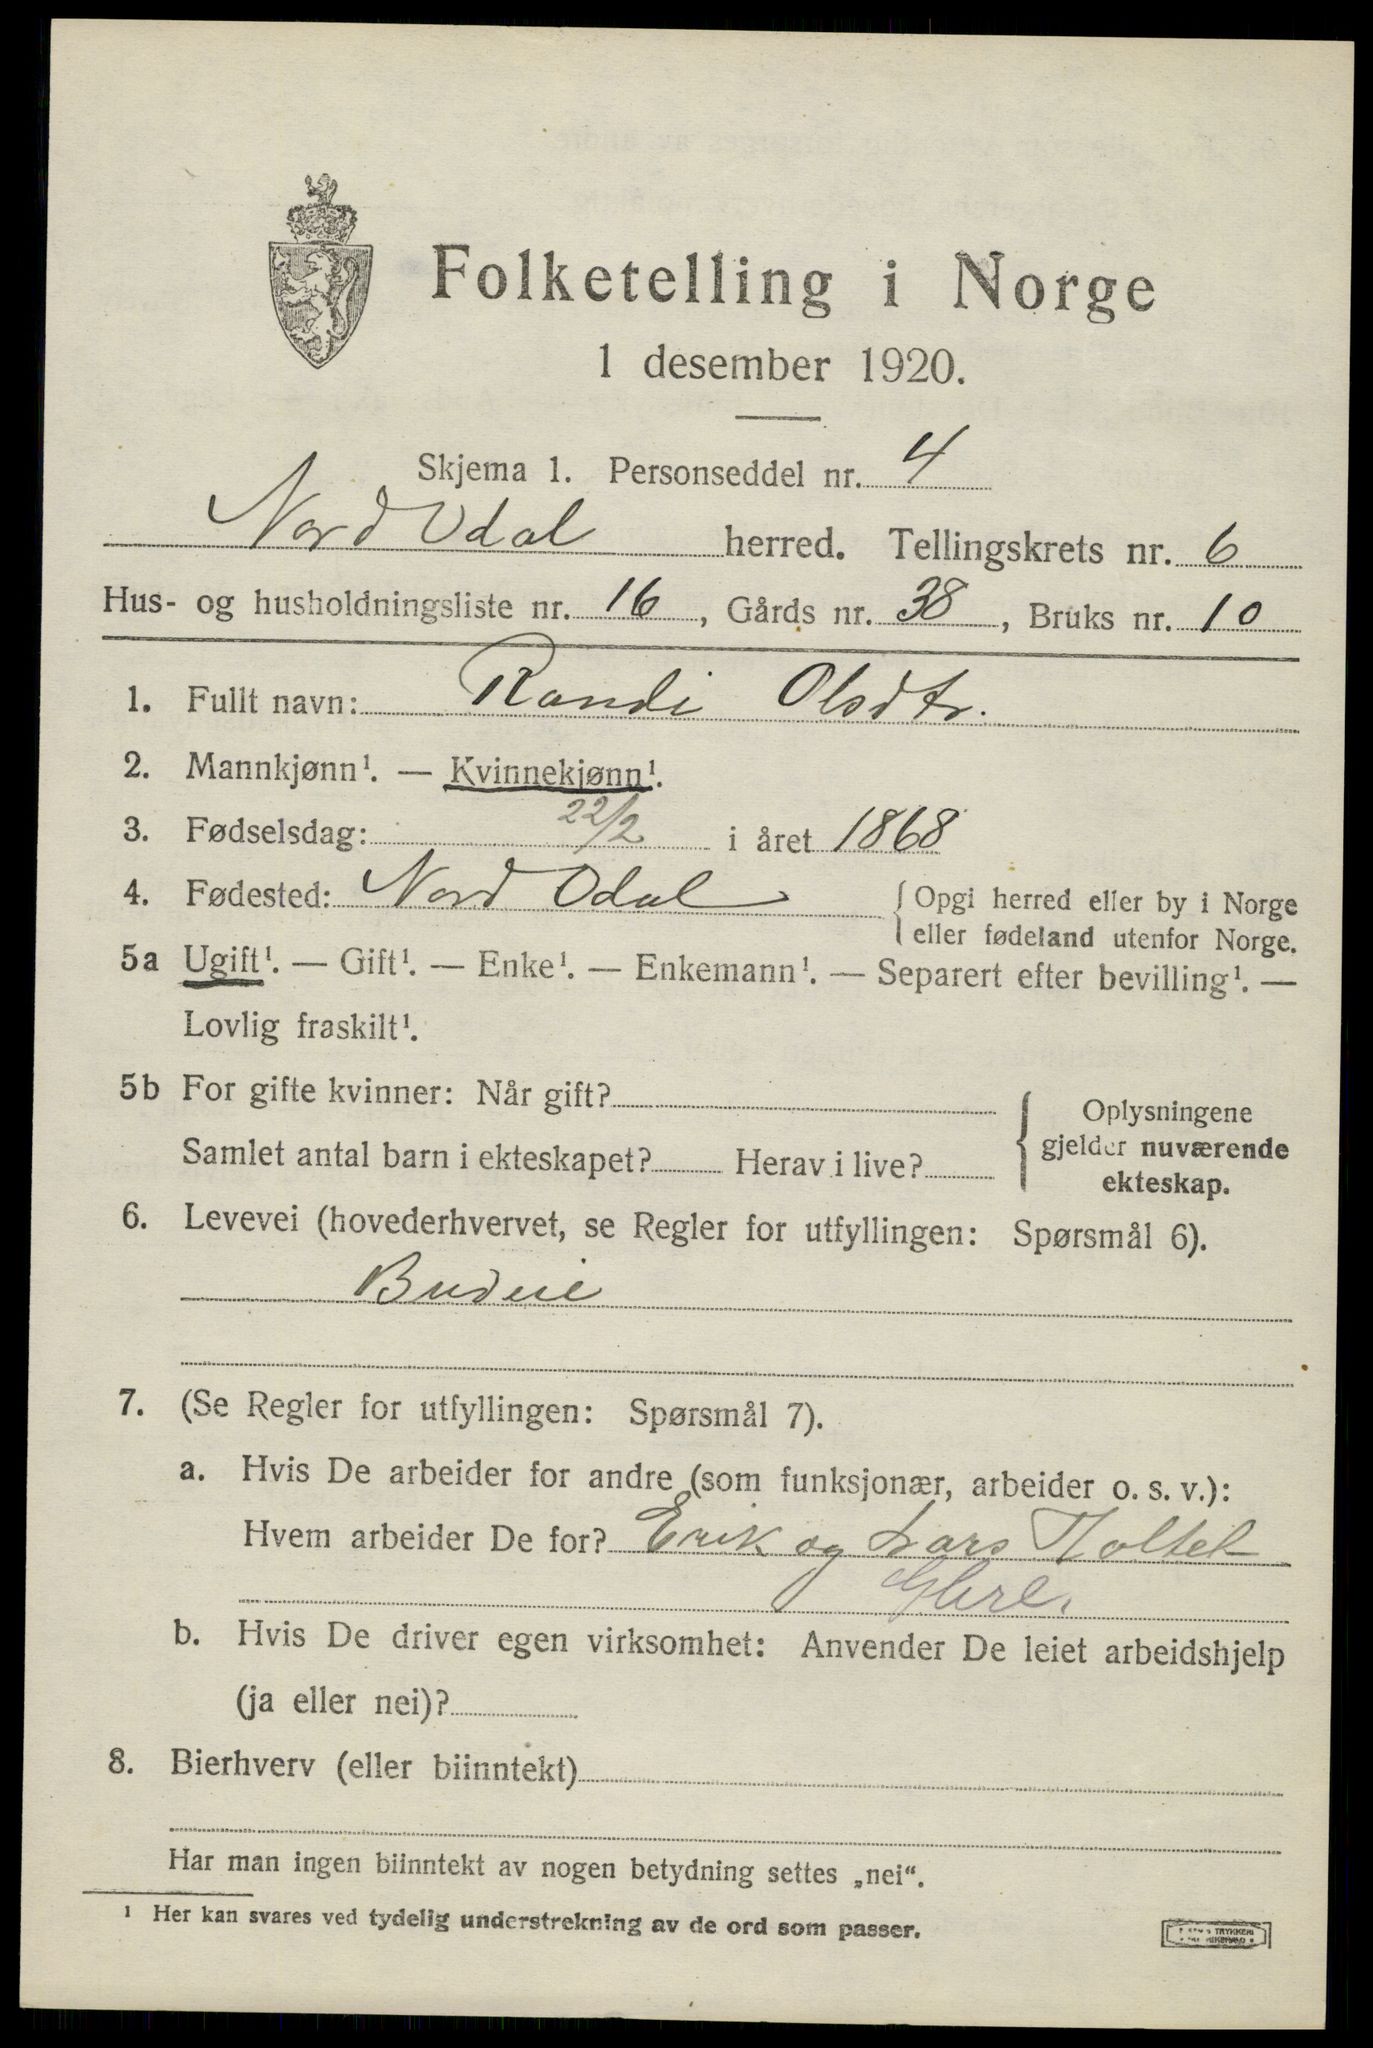 Folketelling i Norge
1 desember 1920.
Skjema 1. Personseddel nr. 4
Nord Odal herred. Tellingskrets nr. 6
Hus- og husholdningsliste nr. 16, Gårds nr. 38, Bruks nr. 10
1. Fullt navn: Randi Olsdtr.
2. Mannkjønn¹. — Kvinnekjønn¹.
3. Fødselsdag: 22/2 i året 1868
4. Fødested: Nord Odal { Opgi herred eller by i Norge
eller fødeland utenfor Norge.
5a Ugift¹. — Gift¹. — Enke¹. — Enkemann¹. — Separert efter bevilling¹. —
Lovlig fraskilt¹.
5b For gifte kvinner: Når gift?
Samlet antal barn i ekteskapet? Herav i live?
Oplysningene
gjelder nuværende
ekteskap.
6. Levevei (hovederhvervet, se Regler for utfyllingen: Spørsmål 6).
Budeie
7. (Se Regler for utfyllingen: Spørsmål 7).
a. Hvis De arbeider for andre (som funksjonær, arbeider o. s. v.):
Hvem arbeider De for? Erik og Lars Holtet
b. Hvis De driver egen virksomhet: Anvender De leiet arbeidshjelp
(ja eller nei)?
8. Bierhverv (eller biinntekt)
Har man ingen biinntekt av nogen betydning settes „nei“.
¹ Her kan svares ved tydelig understrekning av de ord som passer.